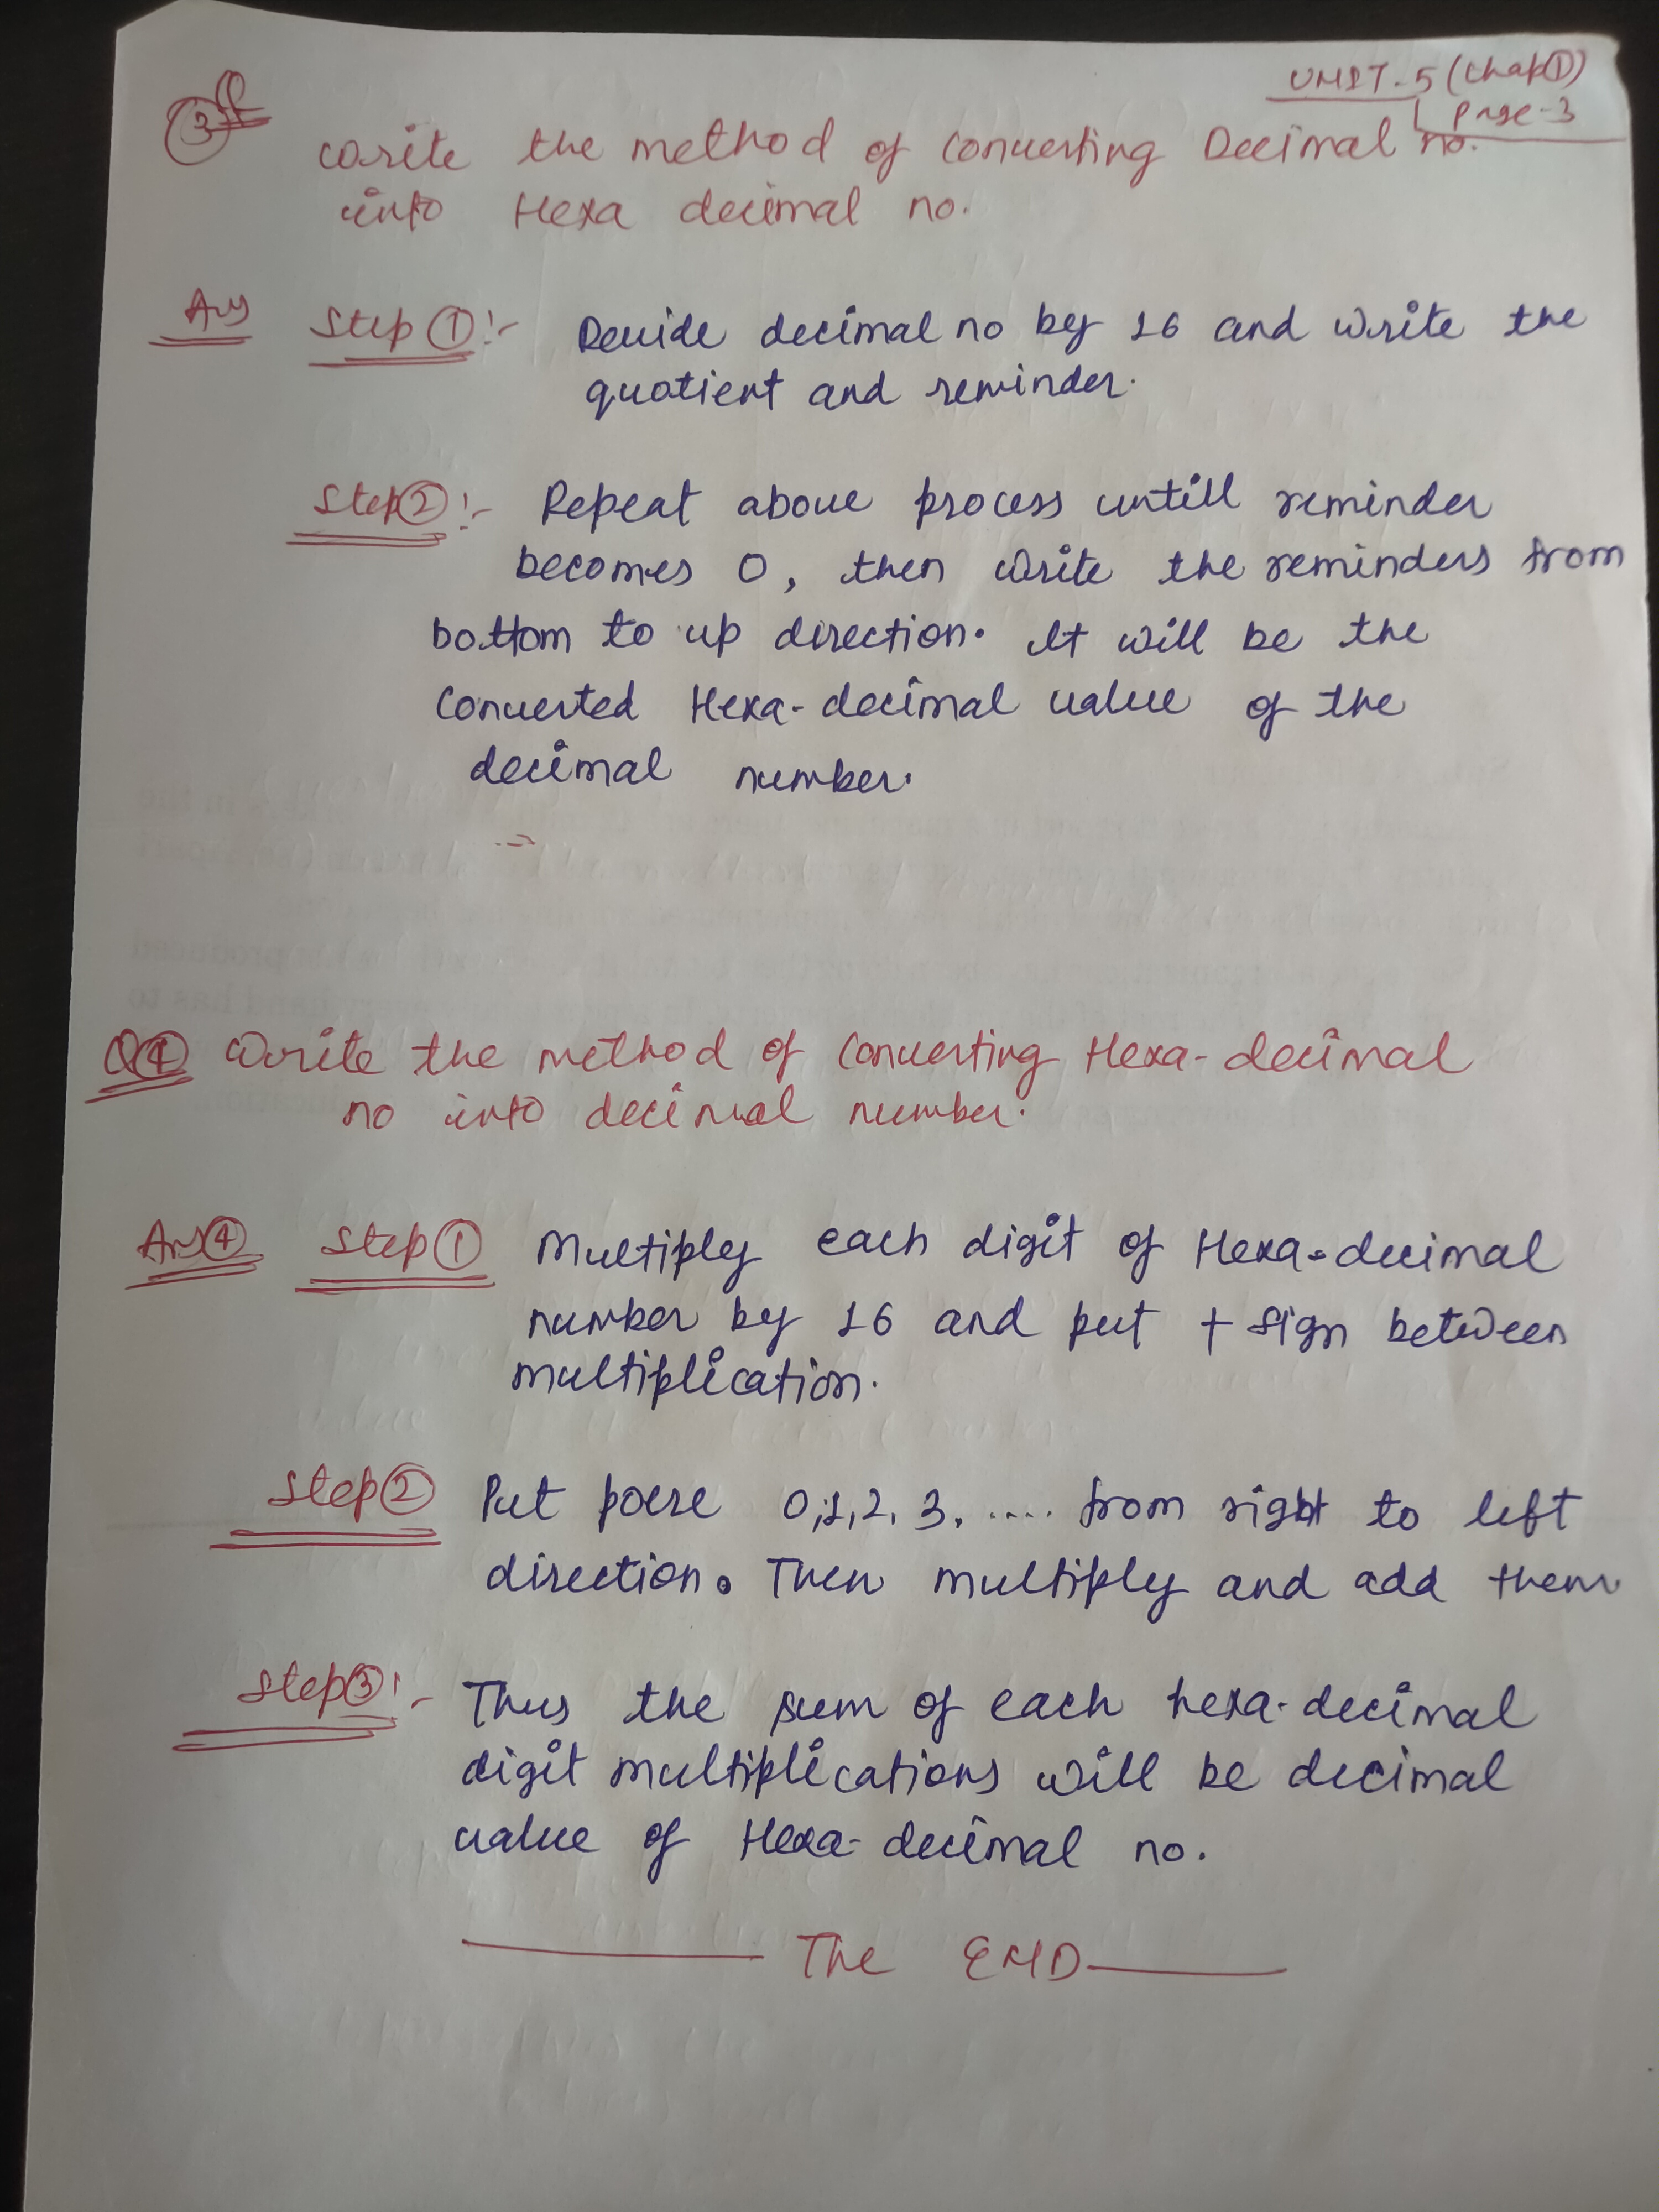 UNIT-5 (Chap①)
Page-3
③
Write the method of Converting Decimal no.
into Hexa decimal no.
Ans Step ①:- Devide decimal no by 16 and write the
quotient and reminder.
Step②:- Repeat above process untill reminder
becomes 0, then write the reminders from
bottom to up direction. It will be the
Converted Hexa-decimal value of the
decimal number.
Q④ Write the method of Converting Hexa-decimal
no into decimal number.
Ans④ Step① Multiply each digit of Hexa-decimal
number by 16 and put + sign between
multiplication.
Step② Put 0,1,2,3, .... from right to left
direction. Then multiply and add them
Step③:- Thus the sum of each hexa-decimal
digit multiplications will be decimal
value of Hexa-decimal no.
The END